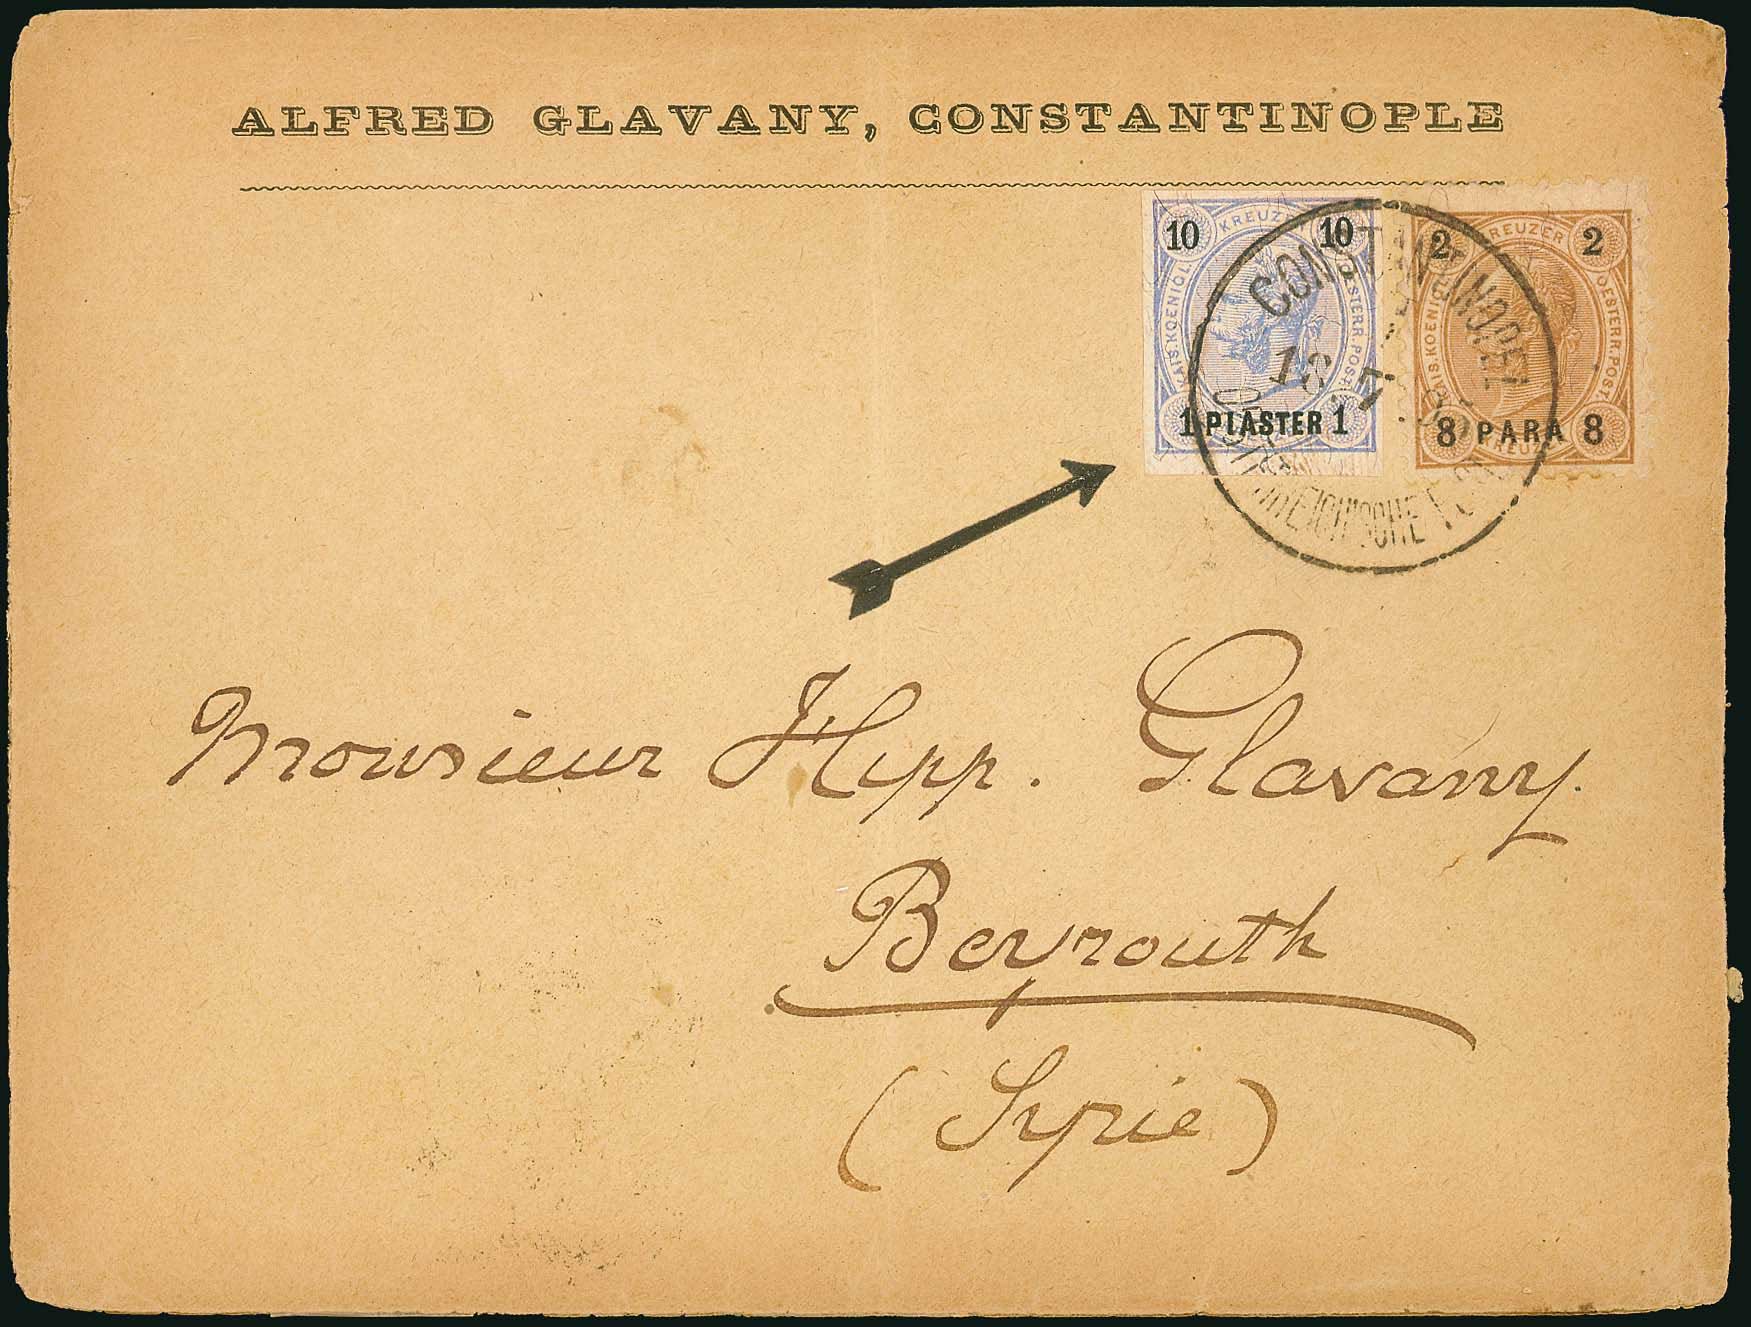 ALFRED GLAVANY, CONSTANTINOPLE
10 KREUZER 10
KAIS.KOENIGL. OESTERR.POST.
1 PIASTER 1
2 KREUZER 2
KAIS.KOENIGL. OESTERR.POST.
8 PARA 8
KREUZER
CONSTANTINOPEL
OSTERREICHISCHE POST
Monsieur Hipp. Glavany.
Beyrouth
(Syrie)